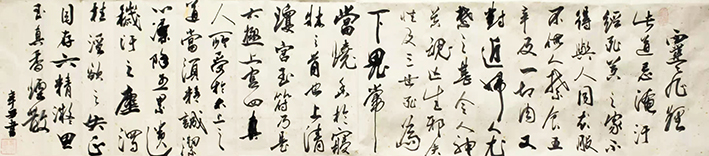 靈飛經
此道忌淹汙
經死喪之家不
得與人同衣服
不假人禁食五
辛及一切肉又
對近婦人尤
禁之甚令人神
喪魂亡生邪失
性及三世死為
下鬼常
當燒香於寢
牀之首也上清
瓊宮玉符乃是
太極上宮四真
人所受於太上之
道當須精誠潔
心澡除五累遺
穢汙之塵濁
杜淫欲之失正
目存六精凝思
玉真香煙散